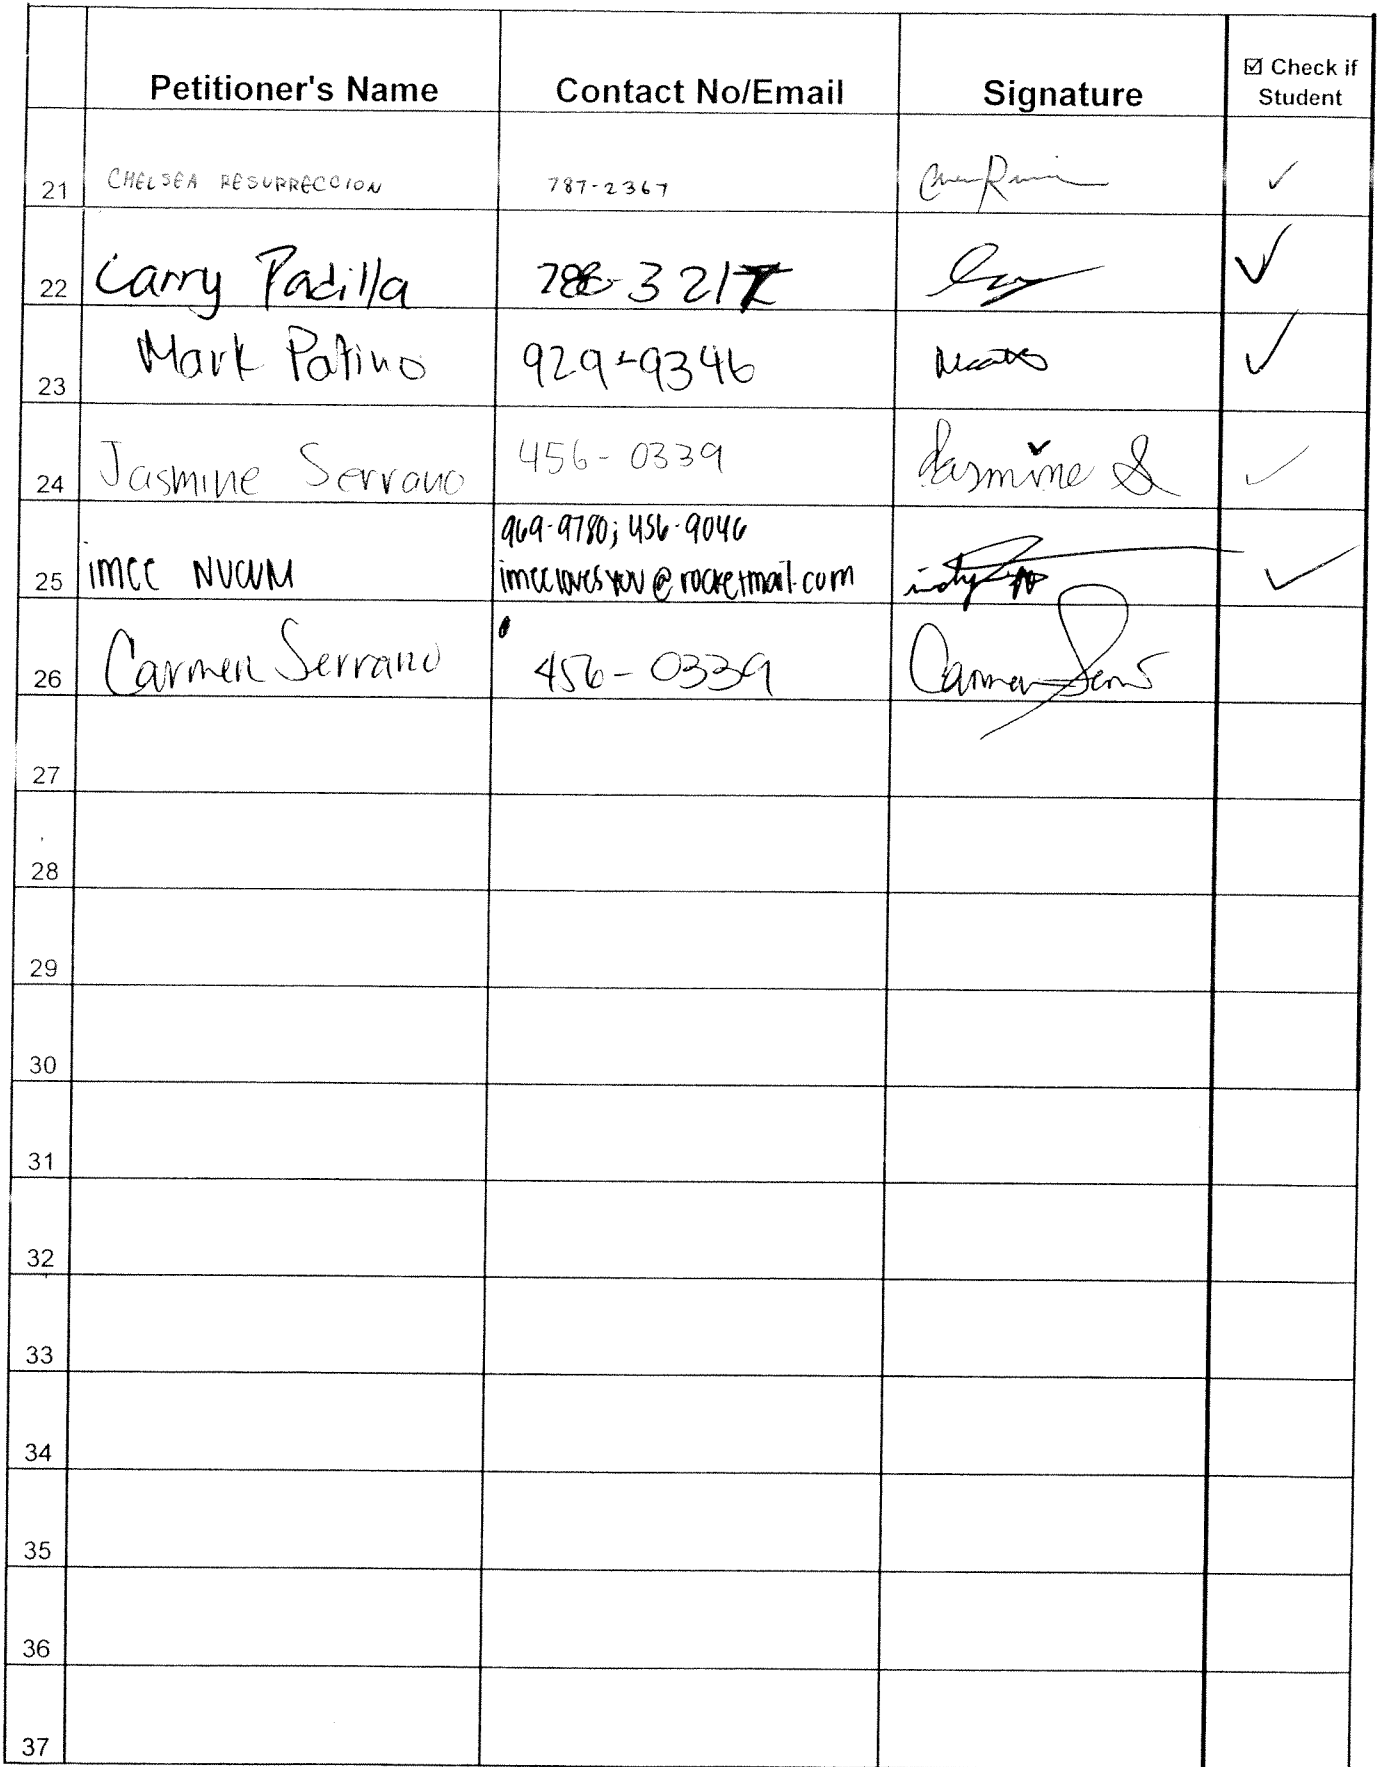 Petitioner's Name Contact No/Email Signature ☑ Check if
Student
21 CHELSEA RESURRECCION 787-2367 ✓
22 Larry Padilla 788-3217 ✓
23 Mark Patino 929-9346 ✓
24 Jasmine Serrano 456-0339 Jasmine S ✓
969-9780; 456-9046
25 imee NUCUM imeelovesyou@rocketmail.com ✓
26 Carmen Serrano 456-0339 Carmen
27
28
29
30
31
32
33
34
35
36
37